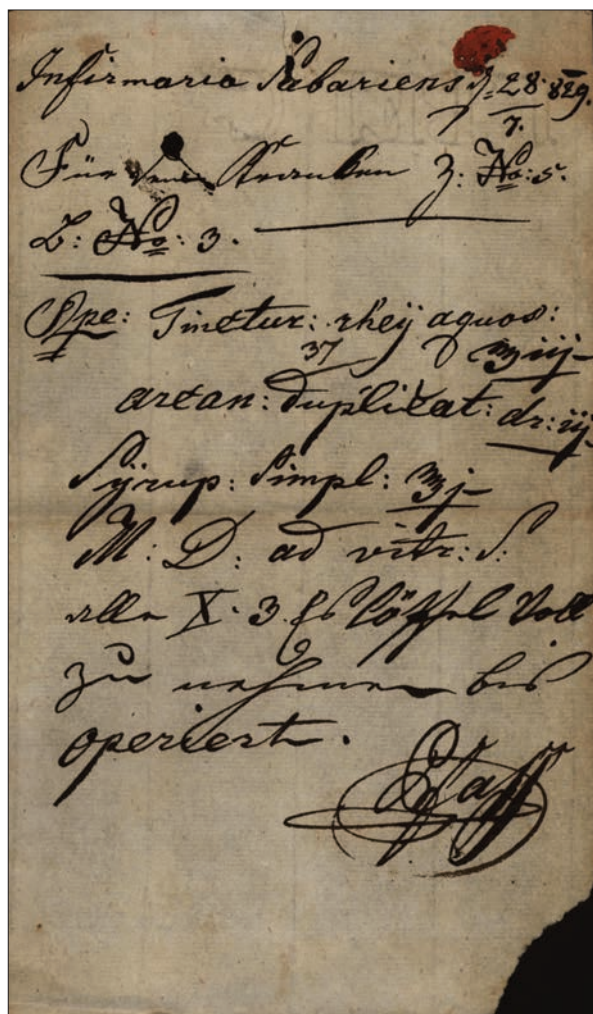 Infirmaria Sabariens 28 829.
7.
Für den Kranken Z: No: 5.
B: No: 3.
Rpe: Tinctur: rheÿ aquos: ʒ iij
37
arcan: duplicat: dr: iij
Sÿrup: Simpl: ʒ j
M: D: ad vitr: S:
alle X. 3 Eslöffel Voll
zu nehmen bis
operiert.